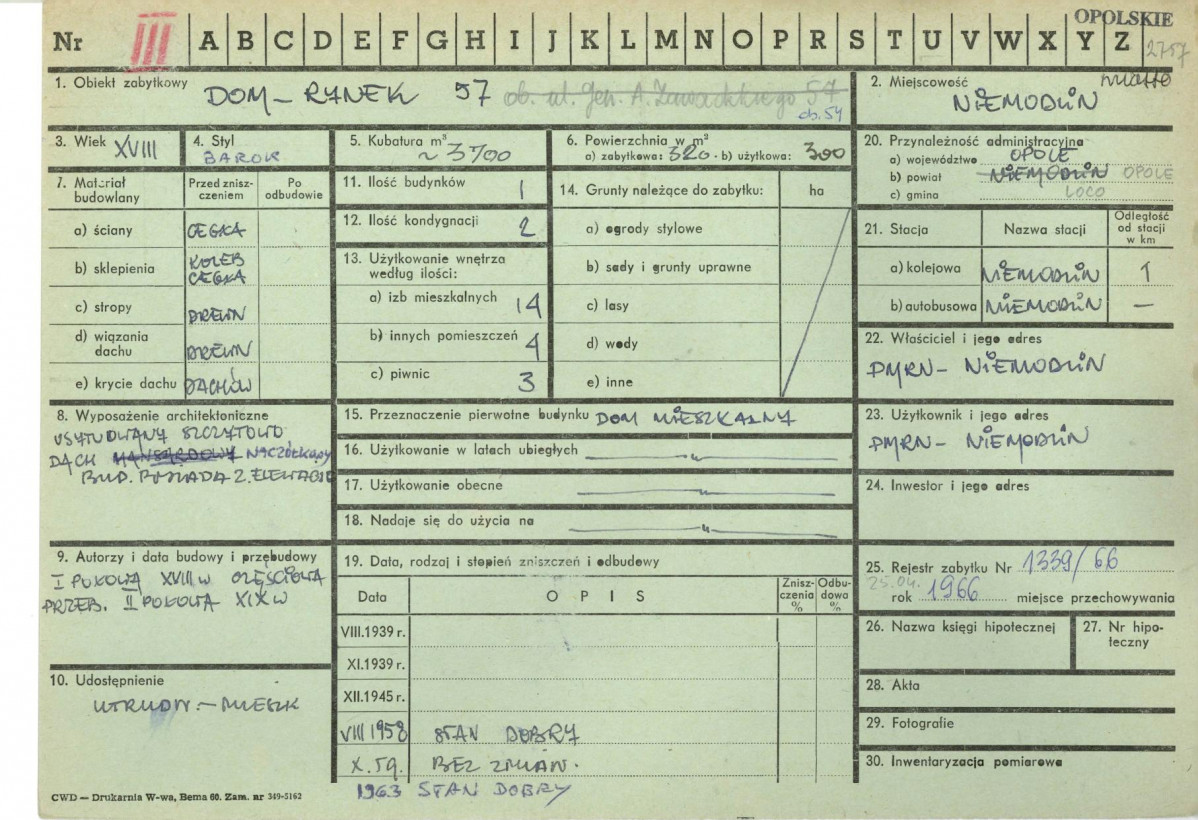 OPOLSKIE
Nr III A B C D E F G H I J K L M N O P R S T U V W X Y Z 2757
1. Obiekt zabytkowy DOM – RYNEK 57 ob. ul. Gen. A. Zawadzkiego 57
ob. 54
2. Miejscowość miasto
NIEMODLIN
3. Wiek XVIII
4. Styl
BAROK
5. Kubatura m³
~ 3700
6. Powierzchnia w m²
a) zabytkowa: 320. b) użytkowa: 300
20. Przynależność administracyjna
a) województwo OPOLE
b) powiat NIEMODLIN OPOLE
c) gmina LOCO
7. Materiał budowlany
Przed zniszczeniem
Po odbudowie
a) ściany CEGŁA
b) sklepienia KOLEB CEGŁA
c) stropy DREWN
d) wiązania dachu DREWN
e) krycie dachu DACHÓW
11. Ilość budynków 1
12. Ilość kondygnacji 2
13. Użytkowanie wnętrza
według ilości:
a) izb mieszkalnych 14
b) innych pomieszczeń 4
c) piwnic 3
14. Grunty należące do zabytku: ha
a) ogrody stylowe
b) sady i grunty uprawne
c) lasy
d) wody
e) inne
21. Stacja
Nazwa stacji
Odległość od stacji w km
a) kolejowa NIEMODLIN 1
b) autobusowa NIEMODLIN —
22. Właściciel i jego adres
PMRN – NIEMODLIN
8. Wyposażenie architektoniczne
USYTUOWANY SZCZYTOWO
DACH MANSARDOWY NACZÓŁKOWY
BUD. POSIADA 2. ELEWACJE
15. Przeznaczenie pierwotne budynku DOM MIESZKALNY
16. Użytkowanie w latach ubiegłych — " —
17. Użytkowanie obecne — " —
18. Nadaje się do użycia na — " —
23. Użytkownik i jego adres
PMRN – NIEMODLIN
24. Inwestor i jego adres
9. Autorzy i data budowy i przebudowy
I POŁOWA XVIII W CZĘŚCIOWA
PRZEB. II POŁOWA XIX W
10. Udostępnienie
UTRUDN. – MIESZK
19. Data, rodzaj i stopień zniszczeń i odbudowy
Data
O P I S
Zniszczenia %
Odbudowa %
VIII.1939 r.
XI.1939 r.
XII.1945 r.
VIII 1958 STAN DOBRY
X.59. BEZ ZMIAN.
1963 STAN DOBRY
25. Rejestr zabytku Nr 1339/66
25.04.
rok 1966 miejsce przechowywania
26. Nazwa księgi hipotecznej
27. Nr hipoteczny
28. Akta
29. Fotografie
30. Inwentaryzacja pomiarowa
CWD — Drukarnia W-wa, Bema 60. Zam. nr 349-5162